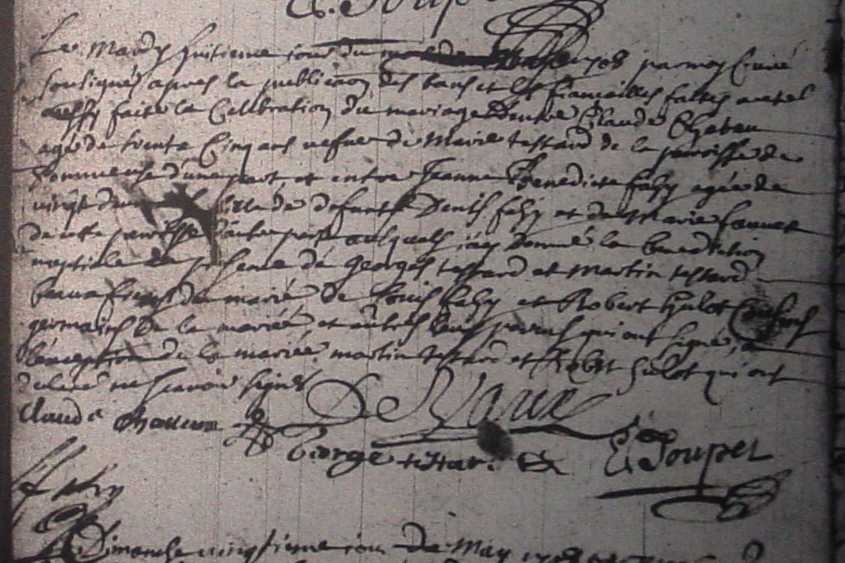 Le Mardy huitieme jour du mois de may 1708 par moy Curé
soussigné apres la publication des bans et les fiancailles faites a esté
faite la Celebration du mariage d'entre Claude
agé de trente Cinq ans vefue de Marie testard de la paroisse de
d'une part et entre Jeanne Benedicte fahy agée de
vingt fille de defunct Denis fahy et de Marie
de cette paroisse d'autre part ausquels j'ay donné la benediction
nuptiale en presence de Georges testard et Martin testard
beaux freres du marié de Louis fahy et Robert hulot Cousins
germains de la mariée et autres leurs parens qui ont signé a
l'exception de la mariée, martin testard et Robert hulot qui ont
declaré ne scavoir signer
Claude
George testar
E Soupet
Dimanche vingtieme jour de May 1708